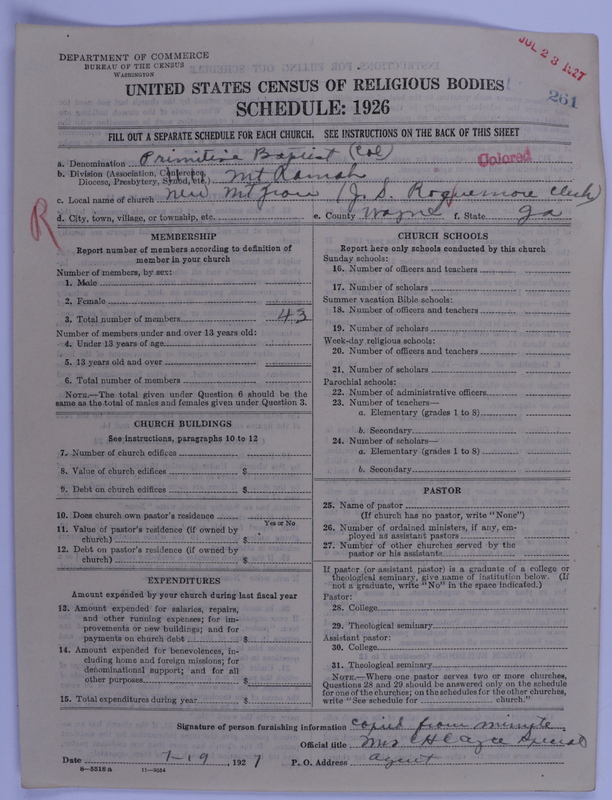 DEPARTMENT OF COMMERCE
BUREAU OF THE CENSUS
WASHINGTON
JUL 23 1927
261
UNITED STATES CENSUS OF RELIGIOUS BODIES
SCHEDULE: 1926
FILL OUT A SEPARATE SCHEDULE FOR EACH CHURCH. SEE INSTRUCTIONS ON THE BACK OF THIS SHEET
a. Denomination Primitive Baptist (Col)
Colored
b. Division (Association, Conference, Diocese, Presbytery, Synod, etc.) Mt Ramah
c. Local name of church New Mt (J. S. Roquemore Clerk)
R
d. City, town, village, or township, etc.
e. County Wayne f. State Ga
MEMBERSHIP
Report number of members according to definition of
member in your church
Number of members, by sex:
1. Male
2. Female
3. Total number of members 43
Number of members under and over 13 years old:
4. Under 13 years of age
5. 13 years old and over
6. Total number of members
NOTE.—The total given under Question 6 should be the
same as the total of males and females given under Question 3.
CHURCH BUILDINGS
See instructions, paragraphs 10 to 12
7. Number of church edifices
8. Value of church edifices $
9. Debt on church edifices $
10. Does church own pastor's residence
Yes or No
11. Value of pastor's residence (if owned by
church) $
12. Debt on pastor's residence (if owned by
church) $
EXPENDITURES
Amount expended by your church during last fiscal year
13. Amount expended for salaries, repairs,
and other running expenses; for im-
provements or new buildings; and for
payments on church debt $
14. Amount expended for benevolences, in-
cluding home and foreign missions; for
denominational support; and for all
other purposes $
15. Total expenditures during year $
CHURCH SCHOOLS
Report here only schools conducted by this church
Sunday schools:
16. Number of officers and teachers
17. Number of scholars
Summer vacation Bible schools:
18. Number of officers and teachers
19. Number of scholars
Week-day religious schools:
20. Number of officers and teachers
21. Number of scholars
Parochial schools:
22. Number of administrative officers
23. Number of teachers—
a. Elementary (grades 1 to 8)
b. Secondary
24. Number of scholars—
a. Elementary (grades 1 to 8)
b. Secondary
PASTOR
25. Name of pastor
(If church has no pastor, write "None")
26. Number of ordained ministers, if any, em-
ployed as assistant pastors
27. Number of other churches served by the
pastor or his assistants
If pastor (or assistant pastor) is a graduate of a college or
theological seminary, give name of institution below. (If
not a graduate, write "No" in the space indicated.)
Pastor:
28. College
29. Theological seminary
Assistant pastor:
30. College
31. Theological seminary
NOTE.—Where one pastor serves two or more churches,
Questions 28 and 29 should be answered only on the schedule
for one of the churches; on the schedules for the other churches,
write "See schedule for church."
Signature of person furnishing information Copied from minute
Official title Mrs C H Special
Date 7-19, 1927 P. O. Address Agent
8-5518 a 11-9054